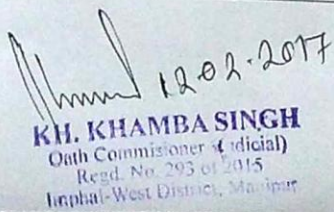 12-02-2017
KH. KHAMBA SINGH
Oath Commissioner (Judicial)
Regd. No. 293 of 2015
Imphal-West District, Manipur